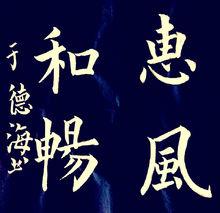 惠風
和暢
于德海书